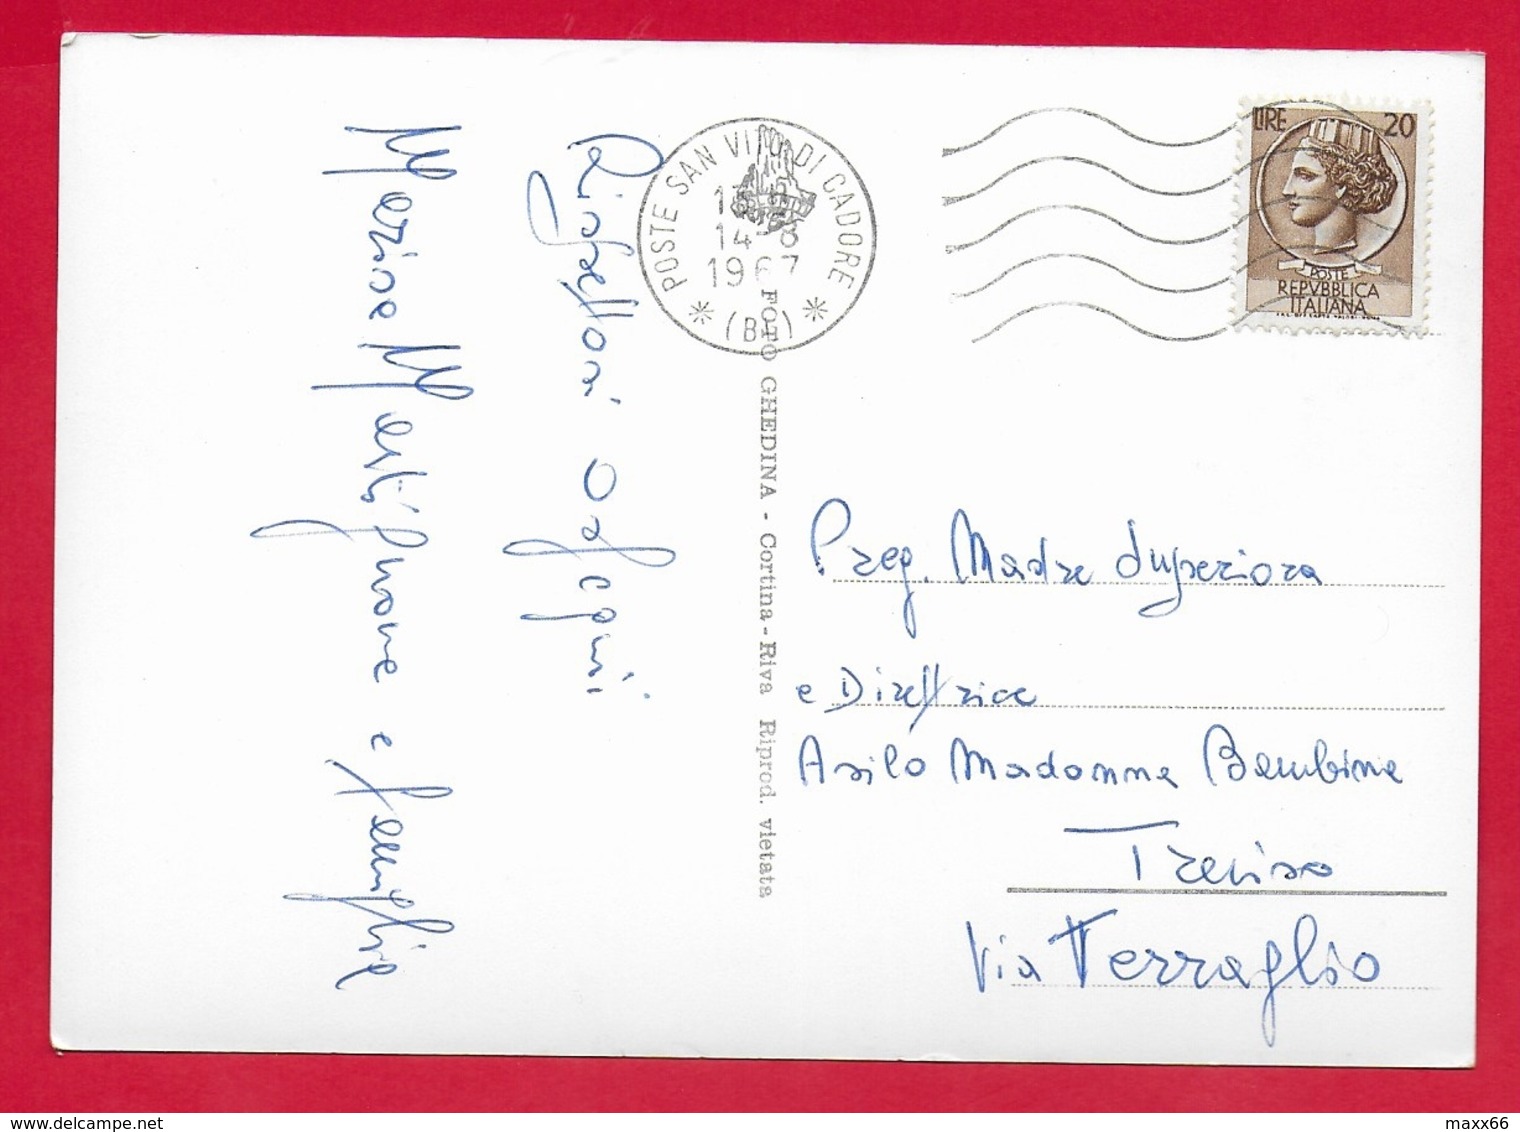 Rispettosi ossequi
Marisa Martignone e famiglia
POSTE SAN VITO DI CADORE
14-8
1967
(BL)
FOTO GHEDINA - Cortina - Riva Riprod. vietata
LIRE 20
POSTE
REPVBBLICA
ITALIANA
Preg. Madre Superiora
e Direttrice
Asilo Madonna Bambina
Treviso
Via Terraglio
Delcampe.net
maxx66